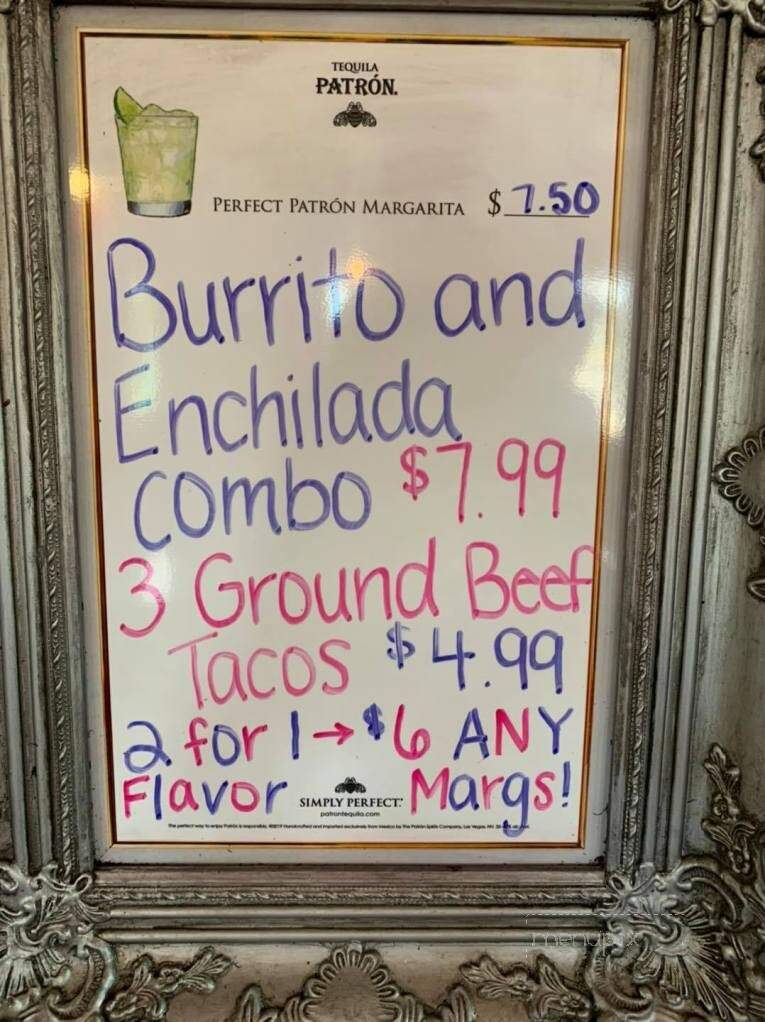 TEQUILA
PATRÓN.
PERFECT PATRÓN MARGARITA $ 7.50
Burrito and
Enchilada
combo $7.99
3 Ground Beef
Tacos $4.99
2 for 1 → $6 ANY
Flavor Margs!
SIMPLY PERFECT.
patrontequila.com
The perfect way to enjoy Patrón is responsibly. Handcrafted and imported exclusively from Mexico by The Patrón Spirits Company, Las Vegas, NV.
menupix